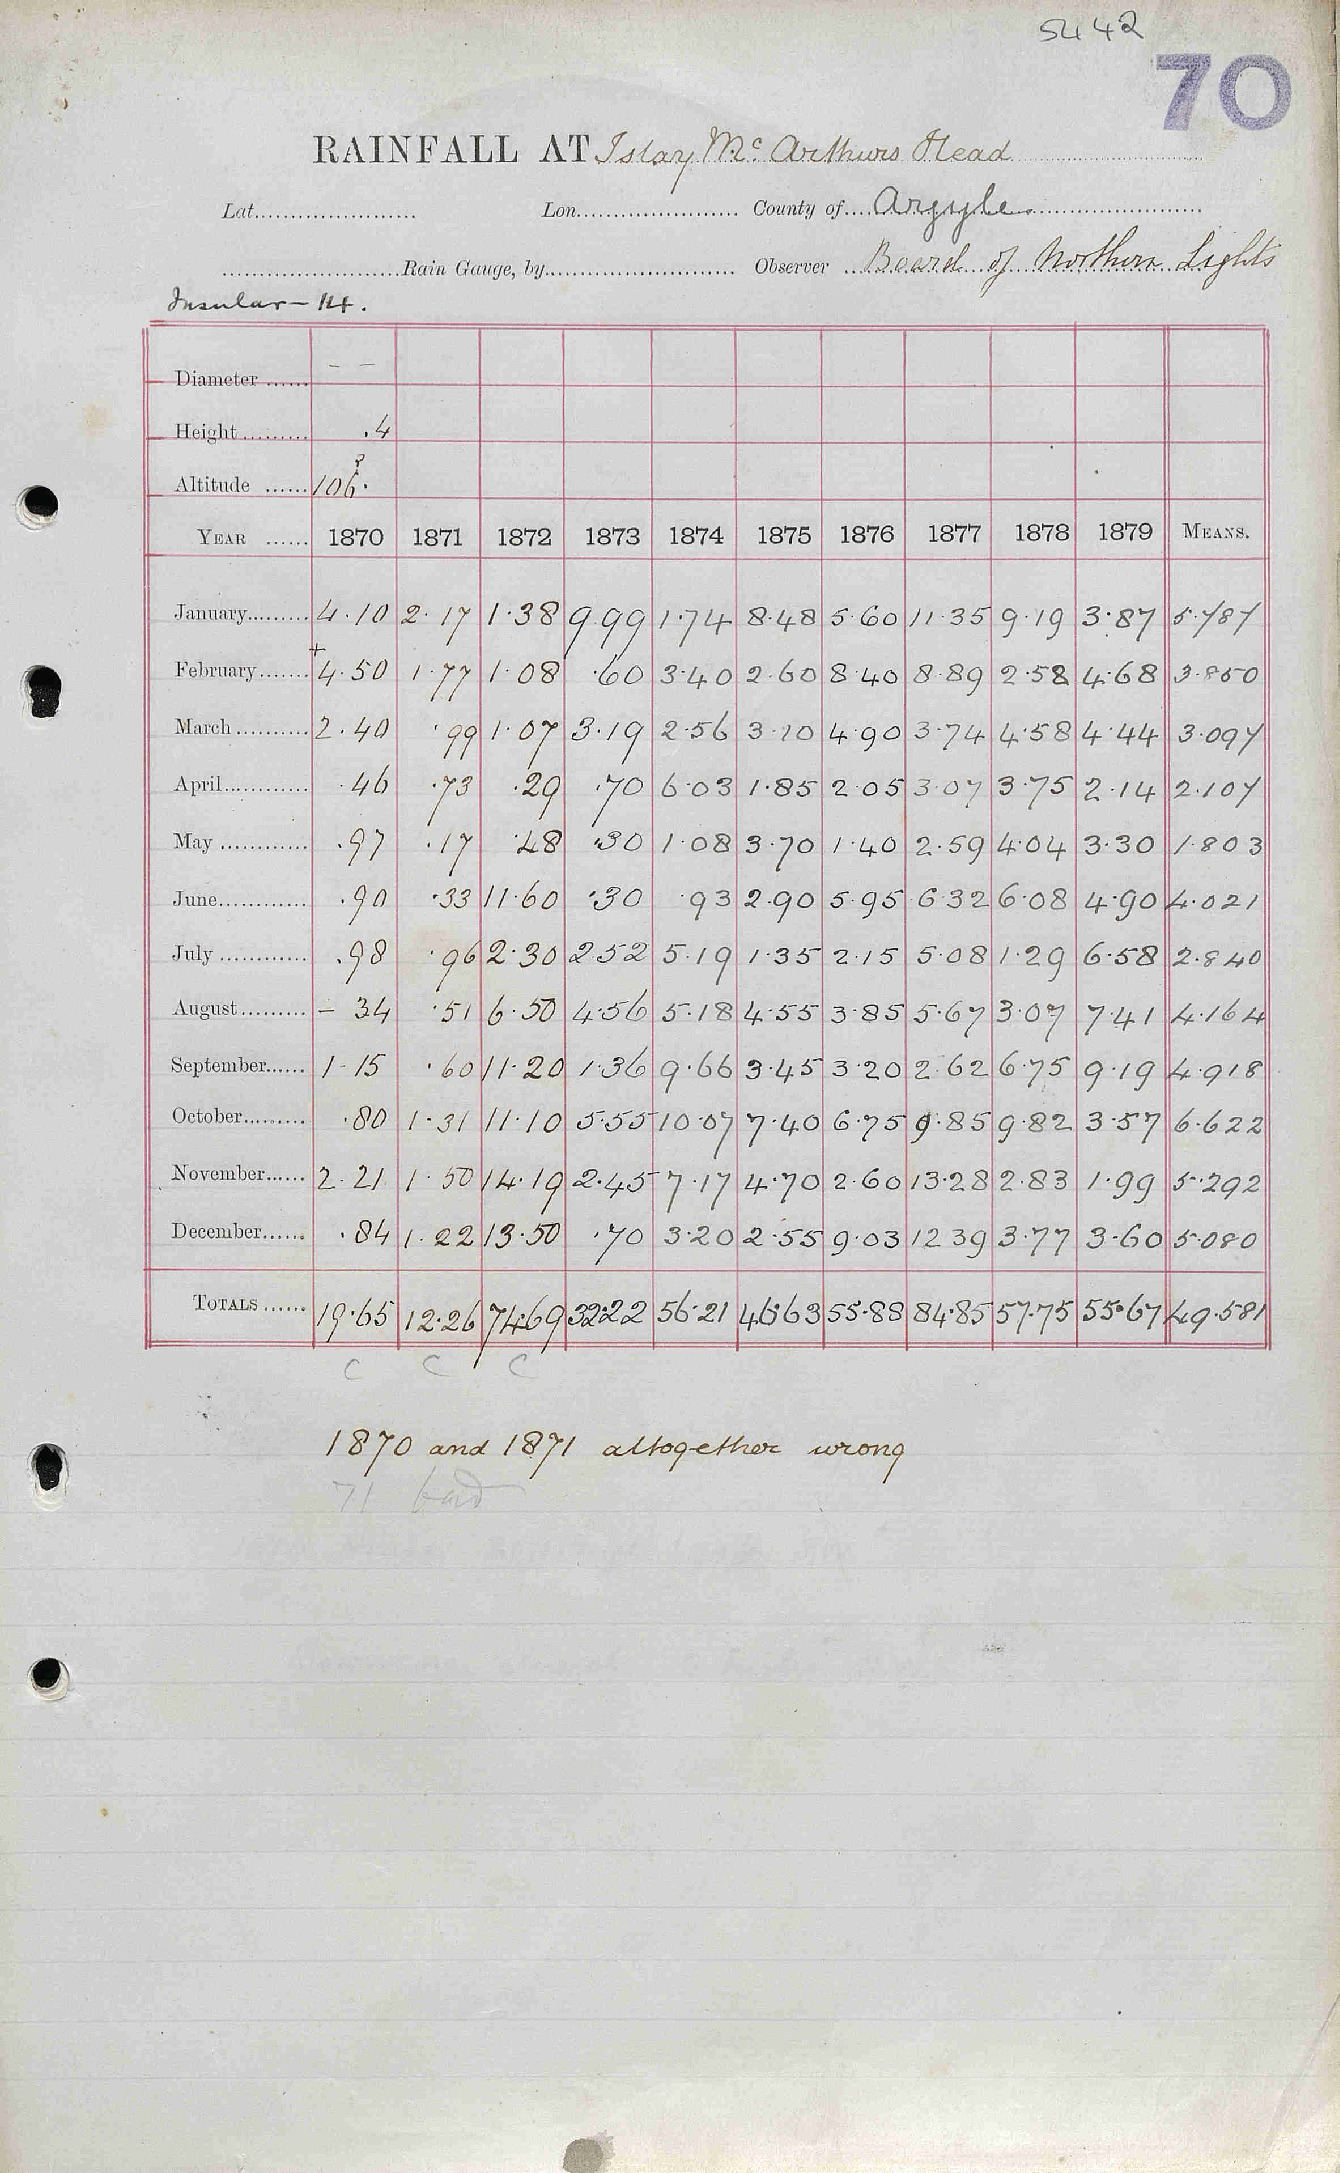 5442
70
RAINFALL AT Islay Mc Arthurs Head
Lat. Lon. County of Argyle
Rain Gauge, by Observer Board of Northern Lights
Insular - 14.
Diameter — —
Height .4
Altitude 106. ?
YEAR 1870 1871 1872 1873 1874 1875 1876 1877 1878 1879 MEANS.
January 4.10 2.17 1.38 9.99 1.74 8.48 5.60 11.35 9.19 3.87 5.787
February +4.50 1.77 1.08 .60 3.40 2.60 8.40 8.89 2.58 4.68 3.850
March 2.40 .99 1.07 3.19 2.56 3.10 4.90 3.74 4.58 4.44 3.097
April .46 .73 .29 .70 6.03 1.85 2.05 3.07 3.75 2.14 2.107
May .97 .17 .48 .30 1.08 3.70 1.40 2.59 4.04 3.30 1.803
June .90 .33 11.60 .30 .93 2.90 5.95 6.32 6.08 4.90 4.021
July .98 .96 2.30 2.52 5.19 1.35 2.15 5.08 1.29 6.58 2.840
August - 34 .51 6.50 4.56 5.18 4.55 3.85 5.67 3.07 7.41 4.164
September 1.15 .60 11.20 1.36 9.66 3.45 3.20 2.62 6.75 9.19 4.918
October .80 1.31 11.10 5.55 10.07 7.40 6.75 9.85 9.82 3.57 6.622
November 2.21 1.50 14.19 2.45 7.17 4.70 2.60 13.28 2.83 1.99 5.292
December .84 1.22 13.50 .70 3.20 2.55 9.03 12 39 3.77 3.60 5.080
TOTALS 19.65 12.26 74.69 32.22 56.21 46.63 55.88 84.85 57.75 55.67 49.581
C C C
1870 and 1871 altogether wrong
71 bad